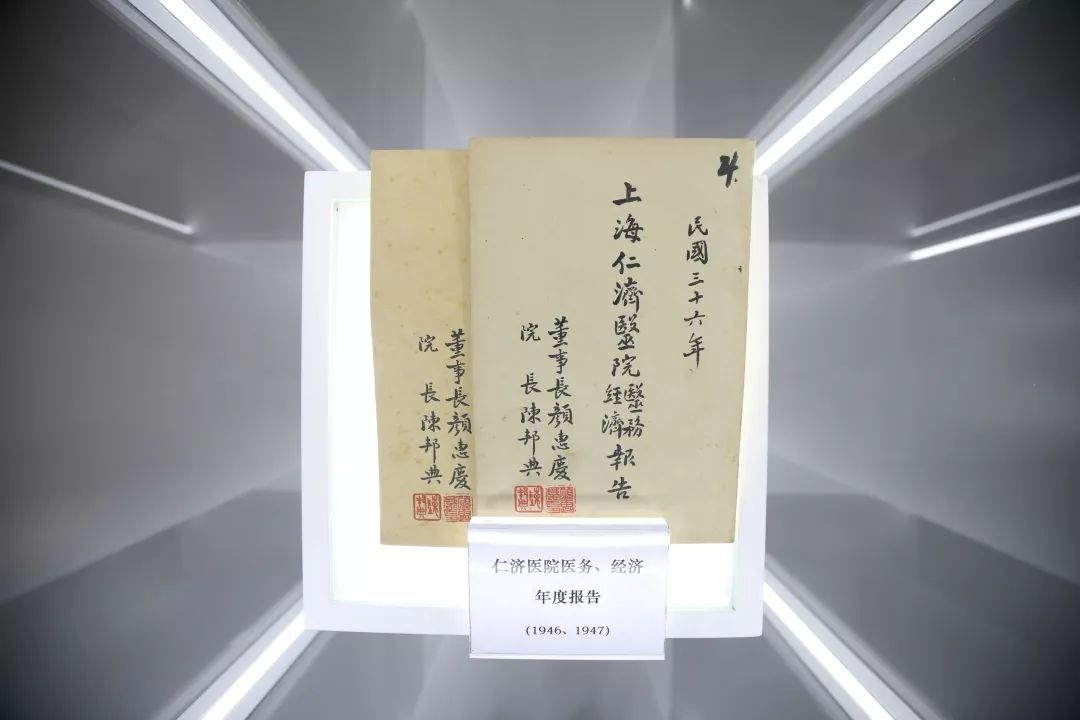 4.
民國三十六年
上海仁濟醫院醫務經濟報告
董事長顏惠慶
院 長陳邦典
董事長顏惠慶
院 長陳邦典
仁济医院医务、经济
年度报告
(1946、1947)